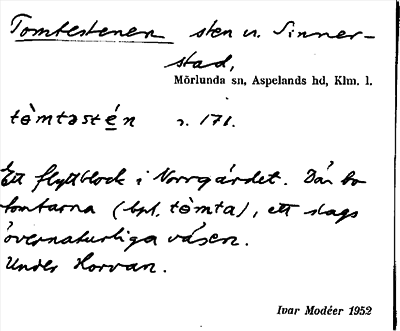 Tomtestenen sten n. Sinner-
stad,
Mörlunda sn, Aspelands hd, Klm. l.
tòmtəstén s. 171.
Ett flyttblock i Norrgärdet. Där bo
tomtarna (bpl. tòmta), ett slags
övernaturliga väsen.
Under Horvan.
Ivar Modéer 1952